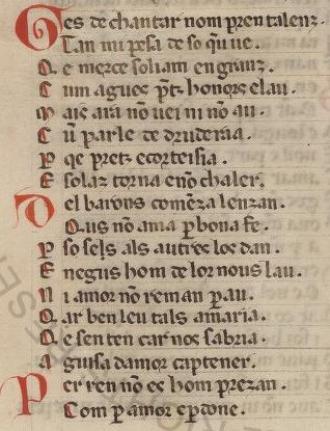 Ges de chantar nom pren talenz.
Tan mi pesa de so qu̅ ue.
Q e merce soliam en granz.
C um agues pt̅. honors elau.
M ais ara no̅ uei ni no̅ au.
C u̅ parle de druderaa.
P qe pretz ecorteisia.
E solaz torna eno̅ chaler.
D el barons come̅za lenzan.
Q us no̅ ama p bona fe.
P so sels als autres los dan.
E negus hom de loz nous lau.
N i amor no̅ reman p au.
Q ar ben leu tals amaria.
Q e sen ten car nos sabria.
A guisa damor captener.
Per ren no̅ es hom prezan.
Com p amor e p done.